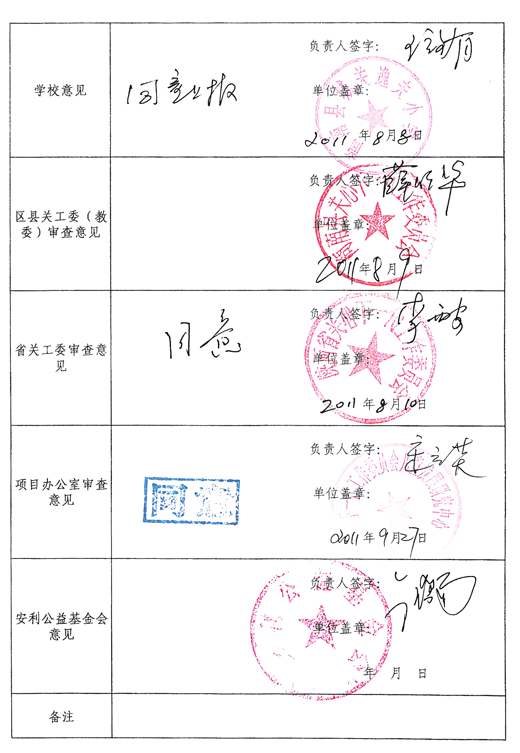 负责人签字:
学校意见
同意上报
单位盖章:
2011 年 8 月 8 日
负责人签字:
区县关工委（教
委）审查意见
单位盖章:
2011 年 8 月 9 日
负责人签字:
省关工委审查意
见
同意
单位盖章:
2011 年 8 月 10 日
负责人签字:
项目办公室审查
意见
同意
单位盖章:
2011 年 9 月 27 日
负责人签字:
安利公益基金会
意见
单位盖章:
年 月 日
备注